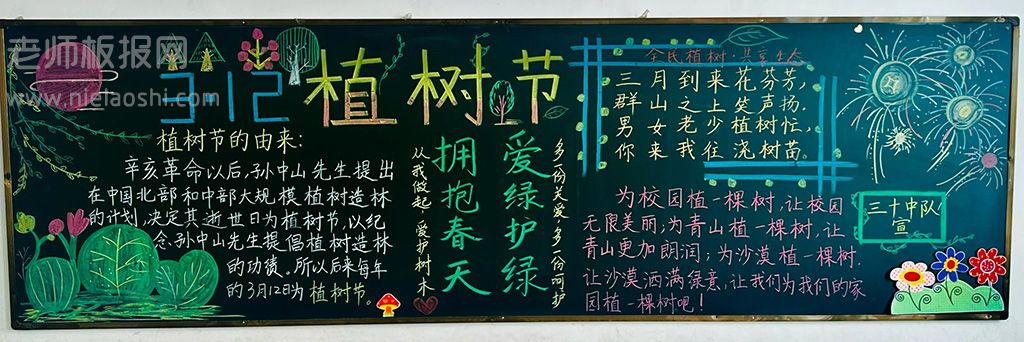 老师板报网
www.nielaoshi.com
3·12 植树节
植树节的由来:
辛亥革命以后,孙中山先生提出
在中国北部和中部大规模植树造林
的计划,决定其逝世日为植树节,以纪
念孙中山先生提倡植树造林
的功绩。所以后来每年
的3月12日为植树节。
从我做起,爱护树木
拥抱春天
爱绿护绿
多一份关爱,多一份呵护
全民植树·共享生态
三月到来花芬芳,
群山之上笑声扬.
男女老少植树忙,
你来我往浇树苗。
为校园植一棵树,让校园
无限美丽;为青山植一棵树,让
青山更加朗润;为沙漠植一棵树.
让沙漠洒满绿意,让我们为我们的家
园植一棵树吧!
三十中队
宣